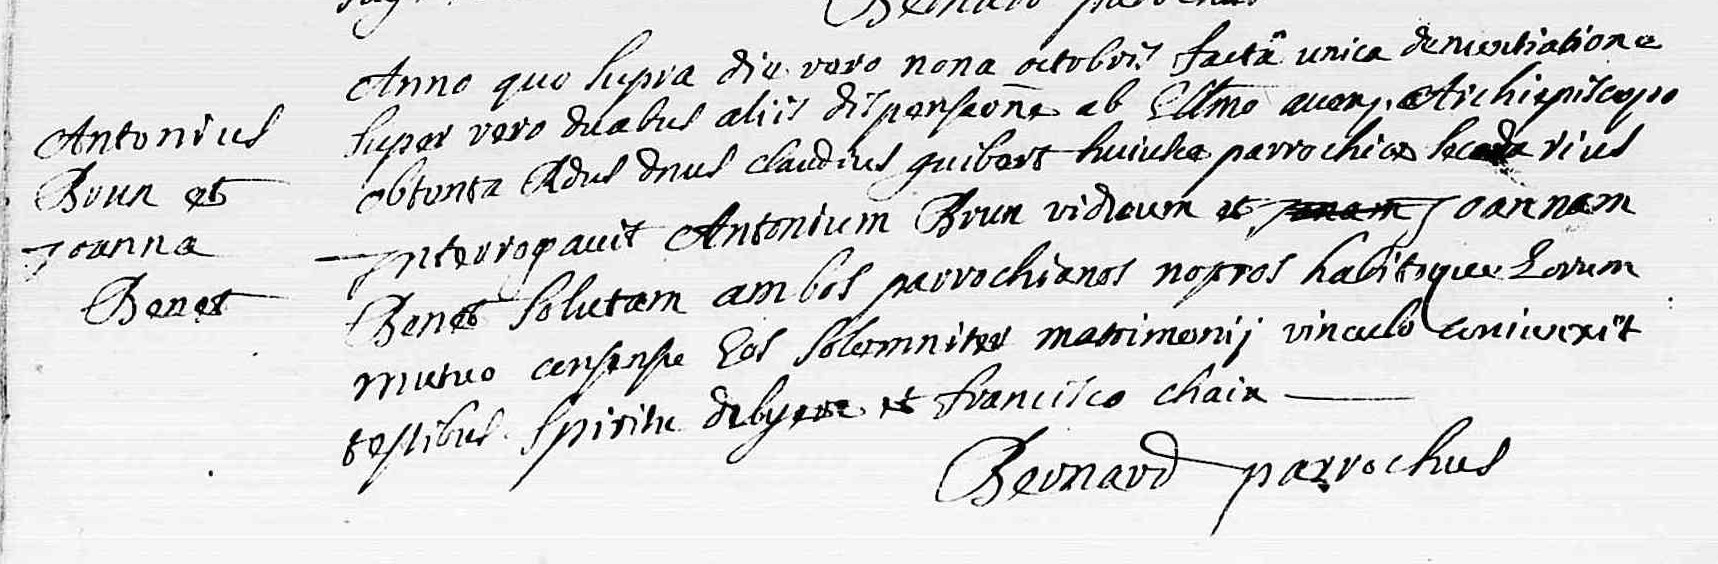 Bernard parrochus
Anno quo supra die vero nona octobris factâ unica denuntiatione
super vero duabus aliis dispensaõne ab Illmo aven. Archiepiscopo
obtenta Rdus dnus claudius guibert huiusce parrochiæ secundarius
Interrogavit Antonium Brun viduum et Joannam
Benet solutam ambos parrochianos nostros habitoque Eorum
mutuo consensu Eos solemniter matrimonij vinculo coniunxit
testibus Spiritu et francisco chaix
Bernard parrochus
Antonius
Brun et
Joanna
Benet